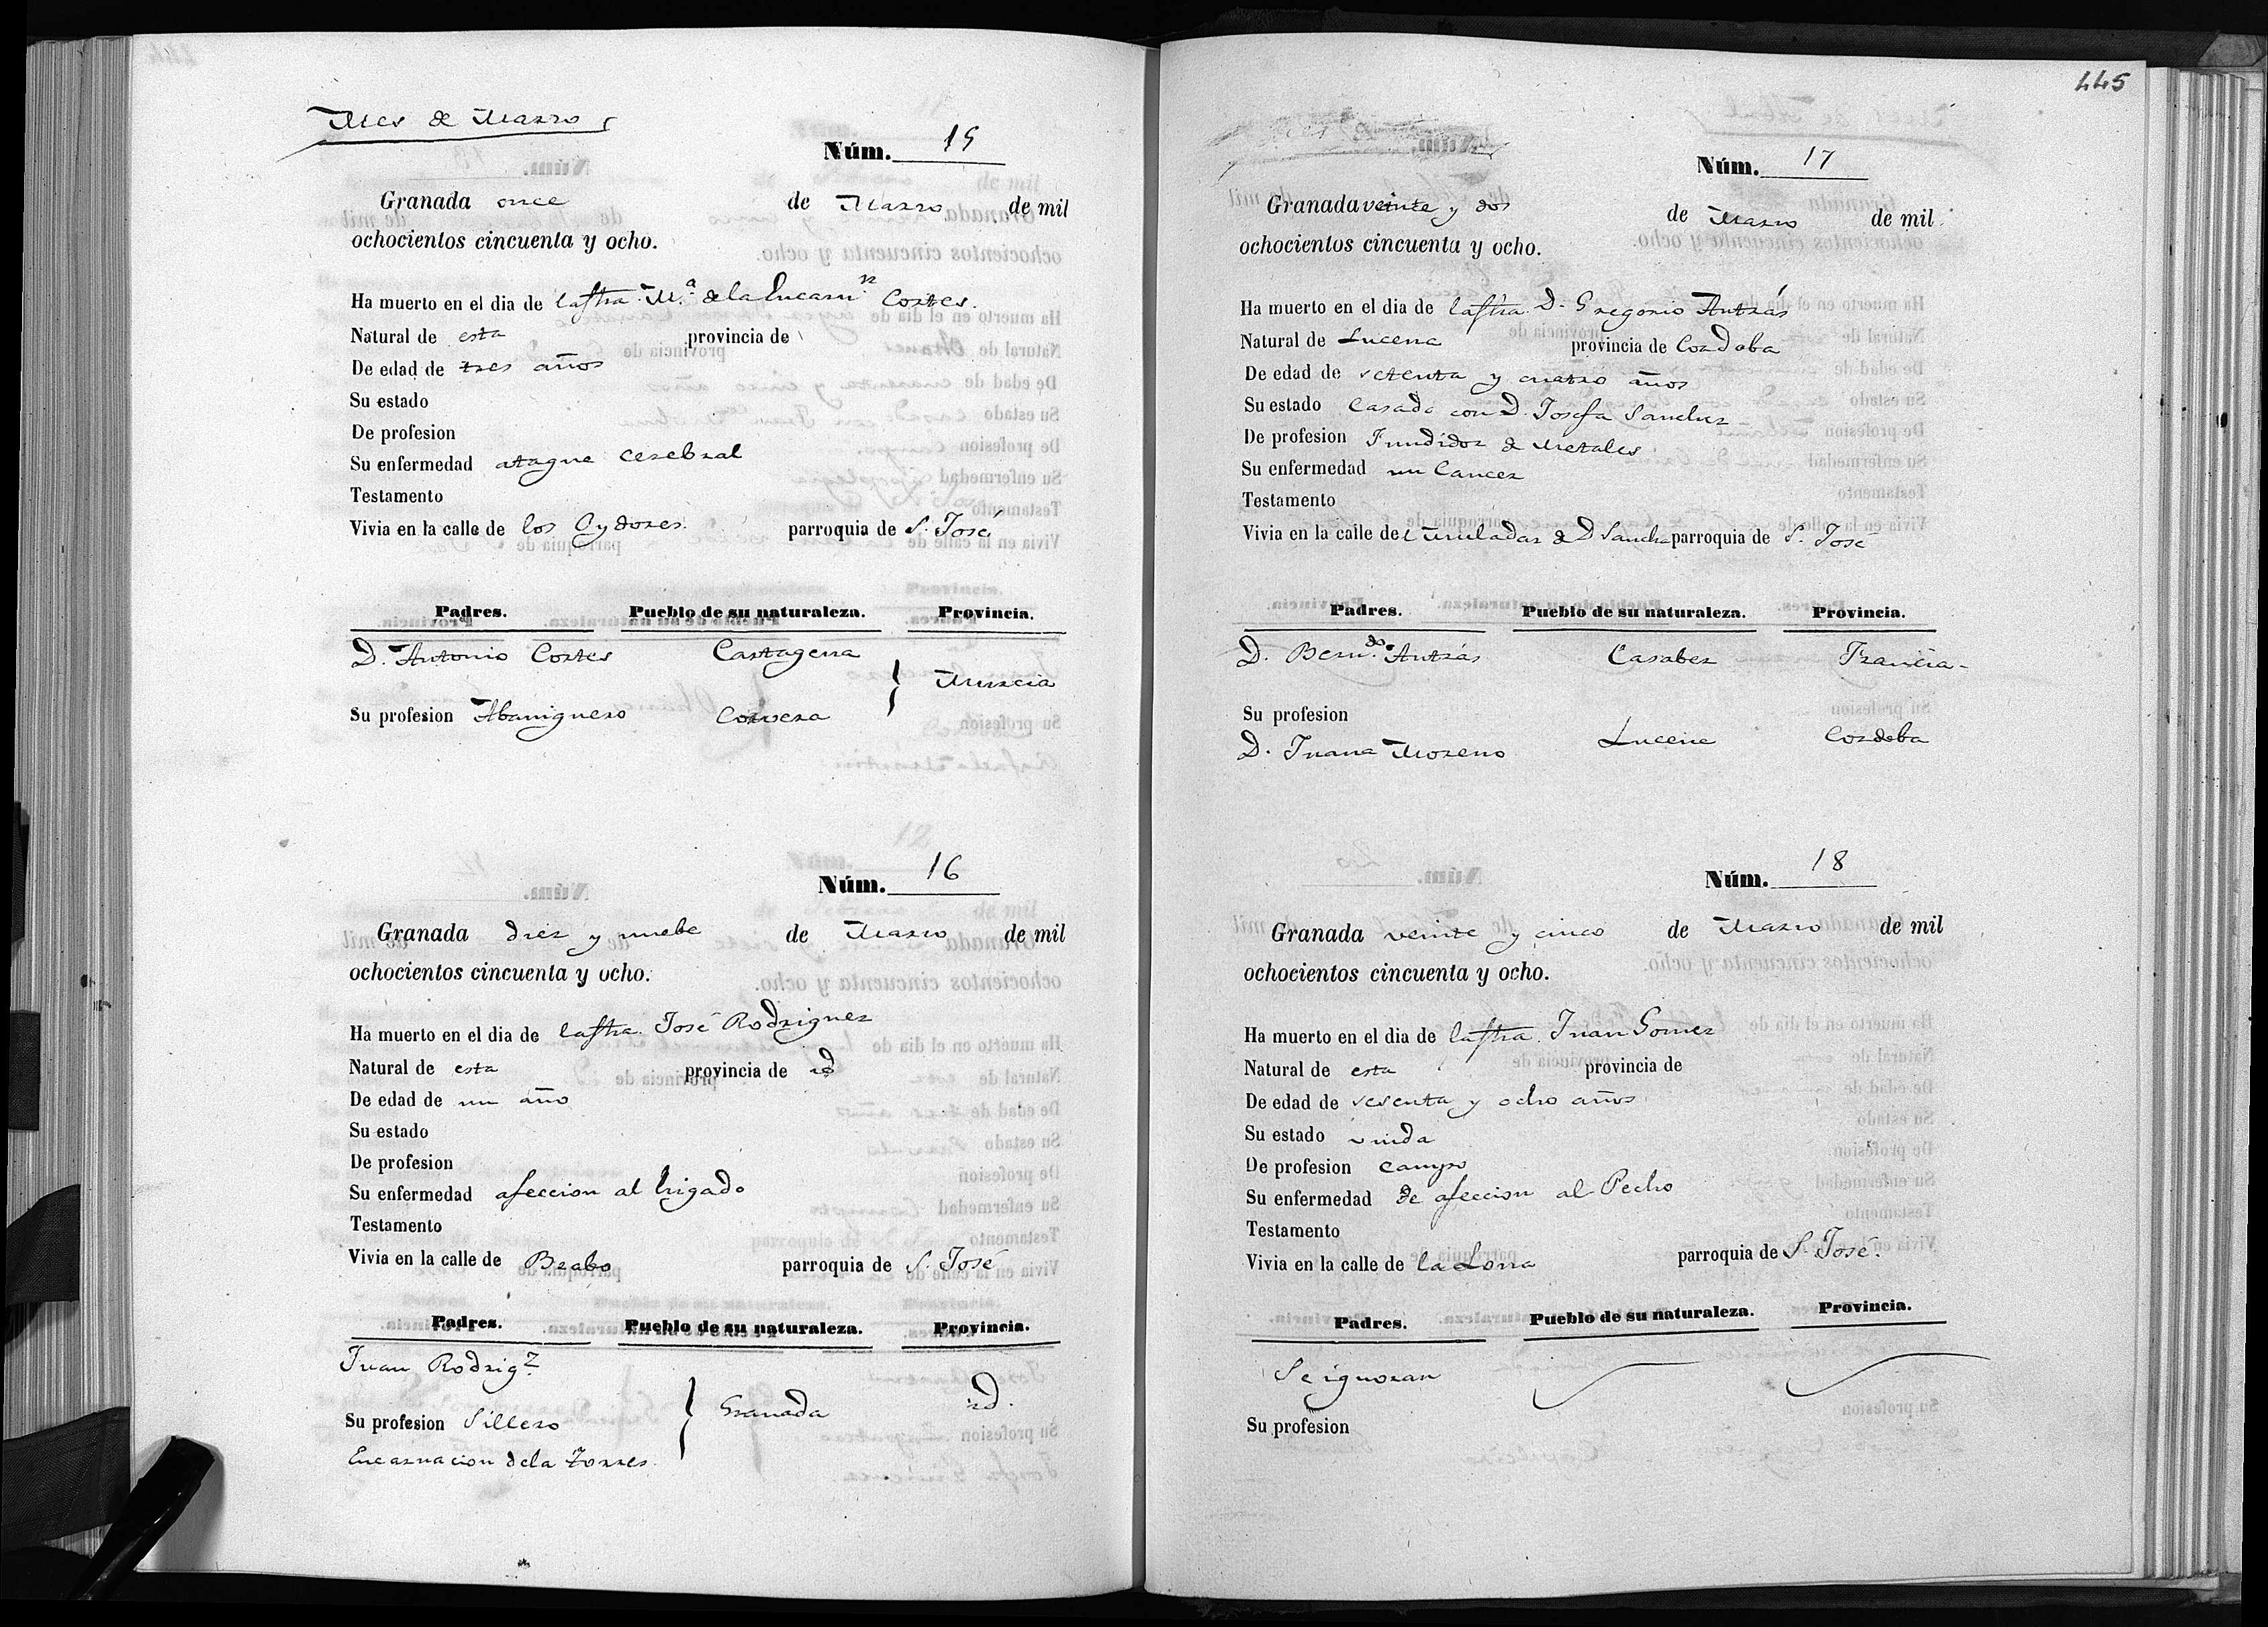 Mes de Marzo
Núm. 15
Granada once de Marzo de mil
ochocientos cincuenta y ocho.
Ha muerto en el dia de la fha. M.ª de la Encarn.n Cortes.
Natural de esta provincia de
De edad de tres años
Su estado
De profesion
Su enfermedad ataque cerebral
Testamento
Vivia en la calle de los Oydores. parroquia de S. José
Padres. Pueblo de su naturaleza. Provincia.
D. Antonio Cortes Cartagena
Murcia
Su profesion Abaniquero Corvera
Núm. 16
Granada diez y nuebe de Marzo de mil
ochocientos cincuenta y ocho.
Ha muerto en el dia de la fha. José Rodriguez
Natural de esta provincia de id
De edad de un año
Su estado
De profesion
Su enfermedad afeccion al higado
Testamento
Vivia en la calle de Brabo parroquia de S. José
Padres. Pueblo de su naturaleza. Provincia.
Juan Rodrig.z
Granada id.
Su profesion Sillero
Encarnacion de la Torres.
445
Núm. 17
Granada veinte y dos de Marzo de mil
ochocientos cincuenta y ocho.
Ha muerto en el dia de la fha. D. Gregorio Antrás
Natural de Lucena provincia de Cordoba
De edad de setenta y cuatro años
Su estado Casado con D. Josefa Sanchez
De profesion Fundidor de Metales
Su enfermedad un Cancer
Testamento
Vivia en la calle de parroquia de S. José
Padres. Pueblo de su naturaleza. Provincia.
D. Bern.do Antrás Casaber Francia-
Su profesion
D. Juana Moreno Lucena Cordoba
Núm. 18
Granada veinte y cinco de Marzo de mil
ochocientos cincuenta y ocho.
Ha muerto en el dia de la fha. Juan Gomez
Natural de esta provincia de
De edad de sesenta y ocho años
Su estado viuda
De profesion Campo
Su enfermedad de afeccion al Pecho
Testamento
Vivia en la calle de la Lona parroquia de S. José.
Padres. Pueblo de su naturaleza. Provincia.
Se ignoran
Su profesion